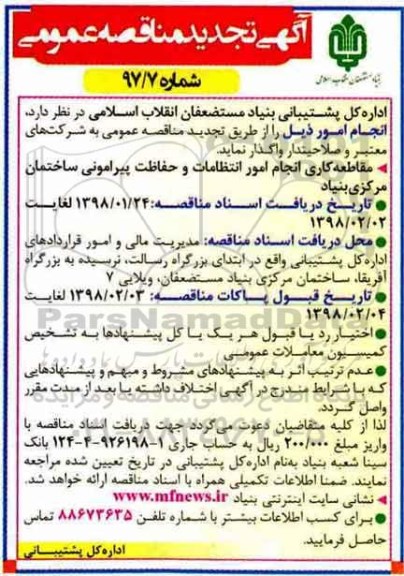 آگهی تجدید مناقصه عمومی
بنیاد مستضعفان انقلاب اسلامی
شماره ۹۷/۷
اداره کل پشتیبانی بنیاد مستضعفان انقلاب اسلامی در نظر دارد،
انجام امور ذیل را از طریق تجدید مناقصه عمومی به شرکت‌های
معتبر و صلاحیتدار واگذار نماید.
◄ مقاطعه‌کاری انجام امور انتظامات و حفاظت پیرامونی ساختمان
مرکزی بنیاد
● تاریخ دریافت اسناد مناقصه: ۱۳۹۸/۰۱/۲۴ لغایت
۱۳۹۸/۰۲/۰۲
● محل دریافت اسناد مناقصه: مدیریت مالی و امور قراردادهای
اداره کل پشتیبانی واقع در ابتدای بزرگراه رسالت، نرسیده به بزرگراه
آفریقا، ساختمان مرکزی بنیاد مستضعفان، ویلایی ۷
● تاریخ قبول پاکات مناقصه: ۱۳۹۸/۰۲/۰۳ لغایت
۱۳۹۸/۰۲/۰۴
ParsNamadData
● اختیار رد یا قبول هر یک یا کل پیشنهادها به تشخیص
کمیسیون معاملات عمومی
● عدم ترتیب اثر به پیشنهادهای مشروط و مبهم و پیشنهادهایی
که با شرایط مندرج در آگهی اختلاف داشته یا بعد از مدت مقرر
واصل گردد.
لذا از کلیه متقاضیان دعوت می‌گردد جهت دریافت اسناد مناقصه با
واریز مبلغ ۲۰۰/۰۰۰ ریال به حساب جاری ۱-۹۲۶۱۹۸-۴-۱۲۴ بانک
سینا شعبه بنیاد به‌نام اداره کل پشتیبانی در تاریخ تعیین شده مراجعه
نمایند. ضمنا اطلاعات تکمیلی همراه با اسناد مناقصه ارائه خواهد شد.
◄ نشانی سایت اینترنتی بنیاد www.mfnews.ir
● برای کسب اطلاعات بیشتر با شماره تلفن ۸۸۶۷۳۶۳۵ تماس
حاصل فرمایید.
اداره کل پشتیبانی